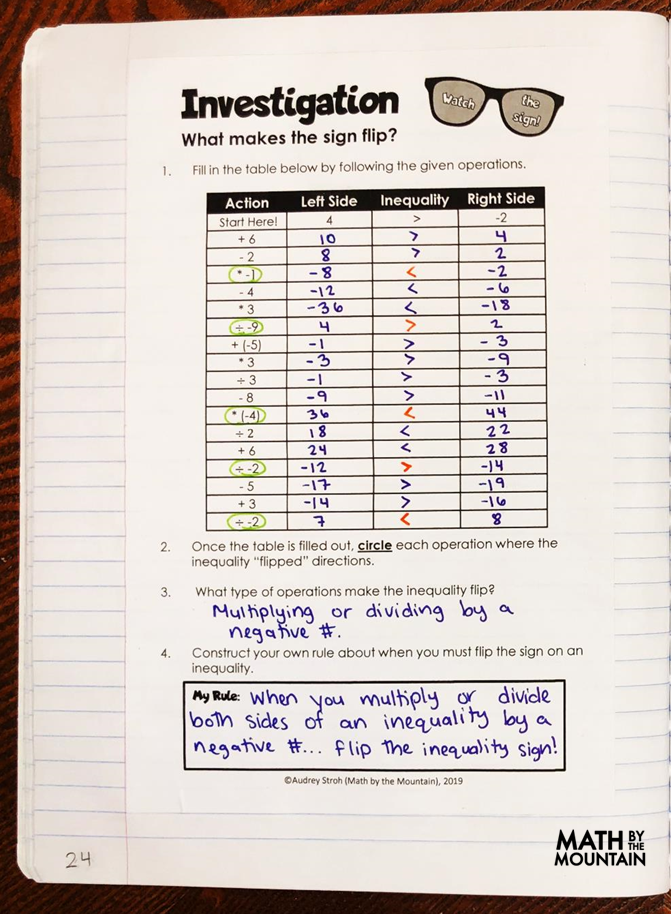 Investigation
Watch the sign!
What makes the sign flip?
1. Fill in the table below by following the given operations.
Action Left Side Inequality Right Side
Start Here! 4 > -2
+ 6 10 > 4
- 2 8 > 2
* -1 -8 < -2
- 4 -12 < -6
* 3 -36 < -18
÷ -9 4 > 2
+ (-5) -1 > -3
* 3 -3 > -9
÷ 3 -1 > -3
- 8 -9 > -11
* (-4) 36 < 44
÷ 2 18 < 22
+ 6 24 < 28
÷ -2 -12 > -14
- 5 -17 > -19
+ 3 -14 > -16
÷ -2 7 < 8
2. Once the table is filled out, circle each operation where the
inequality “flipped” directions.
3. What type of operations make the inequality flip?
Multiplying or dividing by a
negative #.
4. Construct your own rule about when you must flip the sign on an
inequality.
My Rule: When you multiply or divide
both sides of an inequality by a
negative #... flip the inequality sign!
©Audrey Stroh (Math by the Mountain), 2019
24
MATH BY THE
MOUNTAIN